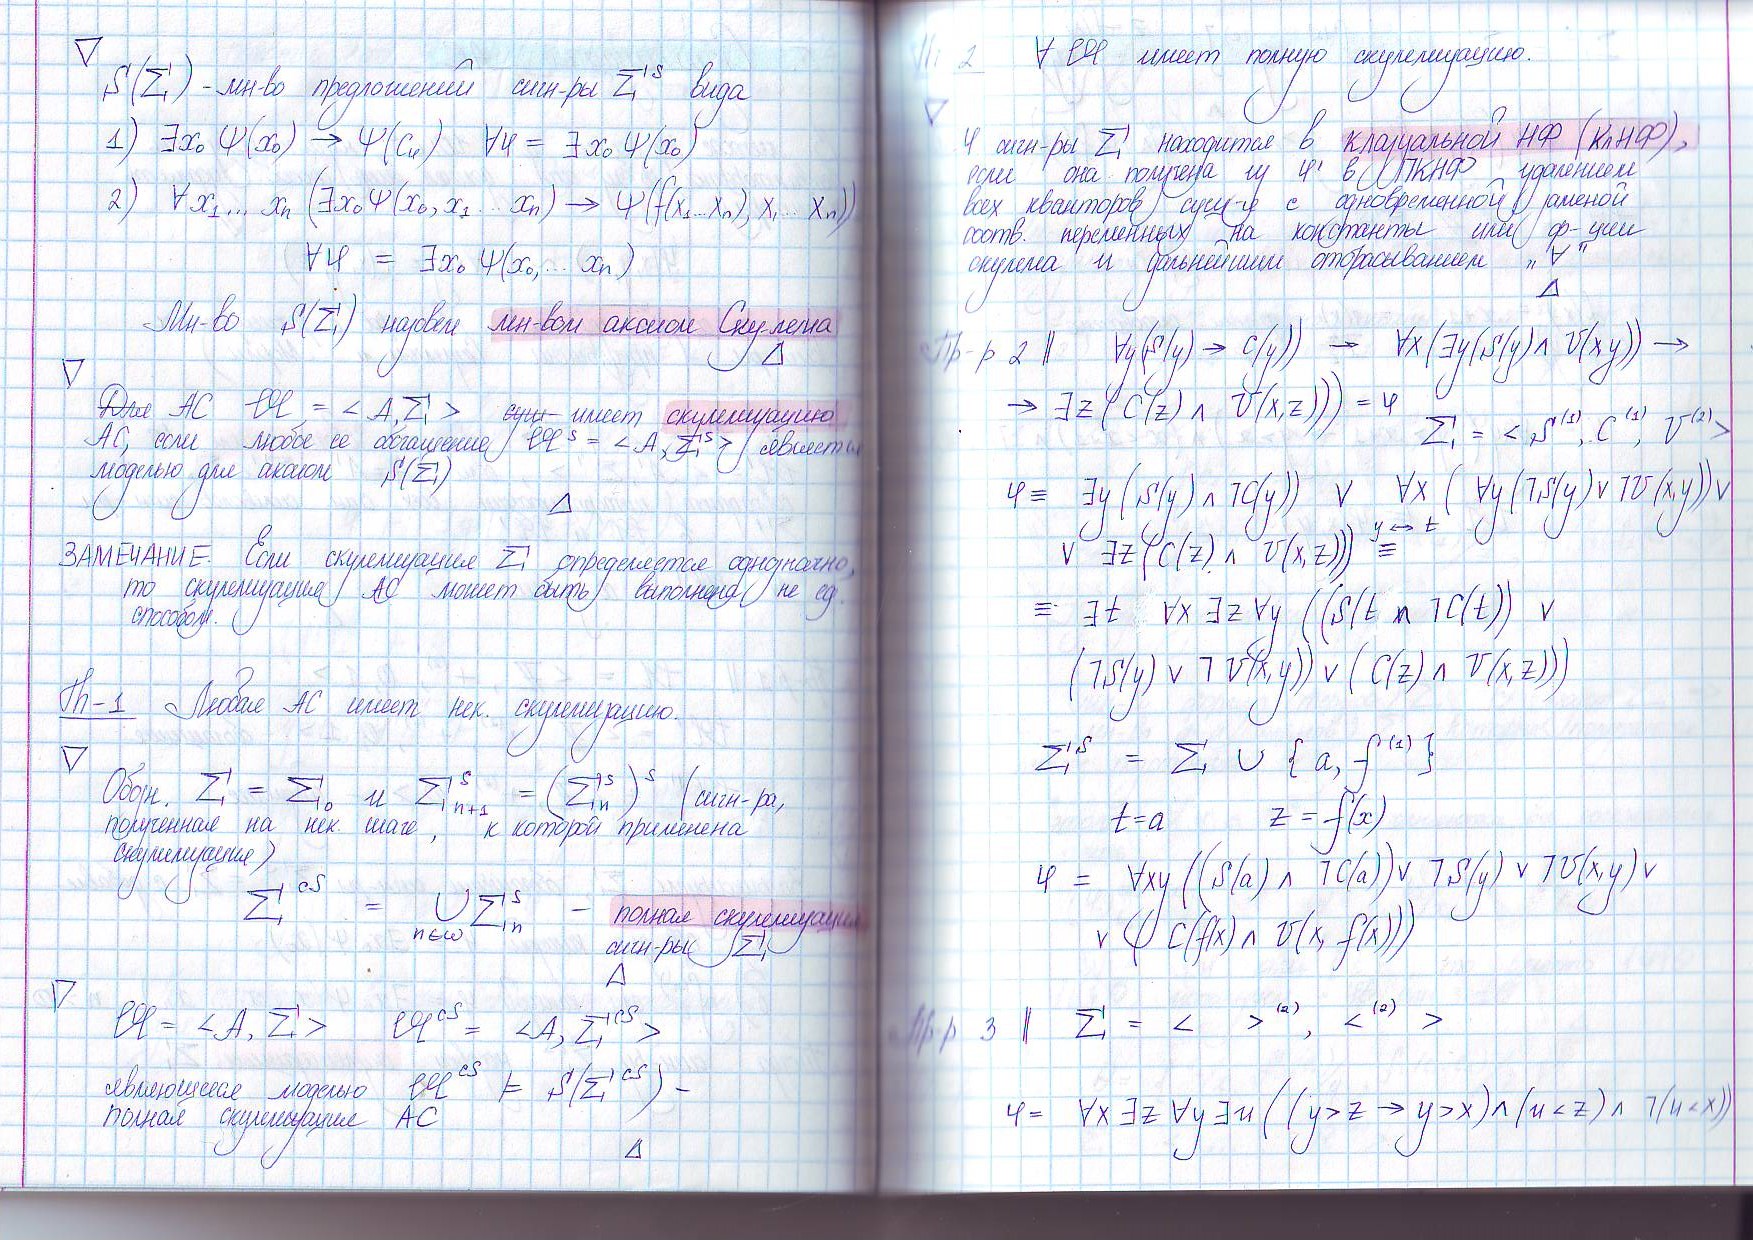 ▽
S(Σ) - мн-во предложений сигн-ры Σˢ вида
1) ∃x₀ Ψ(x₀) → Ψ(c_φ) ∀φ = ∃x₀ Ψ(x₀)
2) ∀x₁... xₙ (∃x₀ Ψ(x₀, x₁ ... xₙ) → Ψ(f(x₁...xₙ), x₁... xₙ))
∀φ = ∃x₀ Ψ(x₀, ... xₙ)
Мн-во S(Σ) назовем мн-вом аксиом Скулема
△
▽
Для АС 𝔄 = < A, Σ > имеет скулемизацию
АС, если любое ее обогащение 𝔄ˢ = < A, Σˢ > является
моделью для аксиом S(Σ)
△
ЗАМЕЧАНИЕ. Если скулемизация Σ определяется однозначно,
то скулемизация АС может быть выполнена не ед.
способом.
Th-1 Любая АС имеет нек. скулемизацию.
▽
Обозн. Σ = Σ₀ и Σˢₙ₊₁ = (Σˢₙ)ˢ (сигн-ра,
полученная на нек. шаге, к которой применена
скулемизация)
Σᶜˢ = ∪ₙ∈ω Σˢₙ - полная скулемизация
сигн-ры Σ
△
▽
𝔄 = < A, Σ > 𝔄ᶜˢ = < A, Σᶜˢ >
являющееся моделью 𝔄ᶜˢ ⊨ S(Σᶜˢ) -
полная скулемизация АС
△
Th 2 ∀ 𝔄 имеет полную скулемизацию.
▽
φ сигн-ры Σ находится в клаузальной НФ (КлНФ),
если она получена из φ' в ПКНФ удалением
всех кванторов сущ-я с одновременной заменой
соотв. переменных на константы или ф-ции
скулема и дальнейшим отбрасыванием „∀"
△
Пр-р 2 ‖ ∀y(S(y) → C(y)) → ∀x(∃y(S(y) ∧ U(x,y)) →
→ ∃z (C(z) ∧ U(x,z))) = φ
Σ = < S⁽¹⁾, C⁽¹⁾, U⁽²⁾ >
φ ≡ ∃y (S(y) ∧ ¬C(y)) ∨ ∀x ( ∀y (¬S(y) ∨ ¬U(x,y)) ∨
∨ ∃z (C(z) ∧ U(x,z))) y↔t ≡
≡ ∃t ∀x ∃z ∀y ((S(t ∧ ¬C(t)) ∨
(¬S(y) ∨ ¬U(x,y)) ∨ (C(z) ∧ U(x,z)))
Σˢ = Σ ∪ {a, f⁽¹⁾}
t=a z = f(x)
φ = ∀xy ((S(a) ∧ ¬C(a)) ∨ ¬S(y) ∨ ¬U(x,y) ∨
∨ ( C(f(x) ∧ U(x, f(x)))
Пр-р 3 ‖ Σ = < >⁽²⁾, <⁽²⁾ >
φ = ∀x ∃z ∀y ∃u ((y > z → y > x) ∧ (u < z) ∧ ¬(u < x))